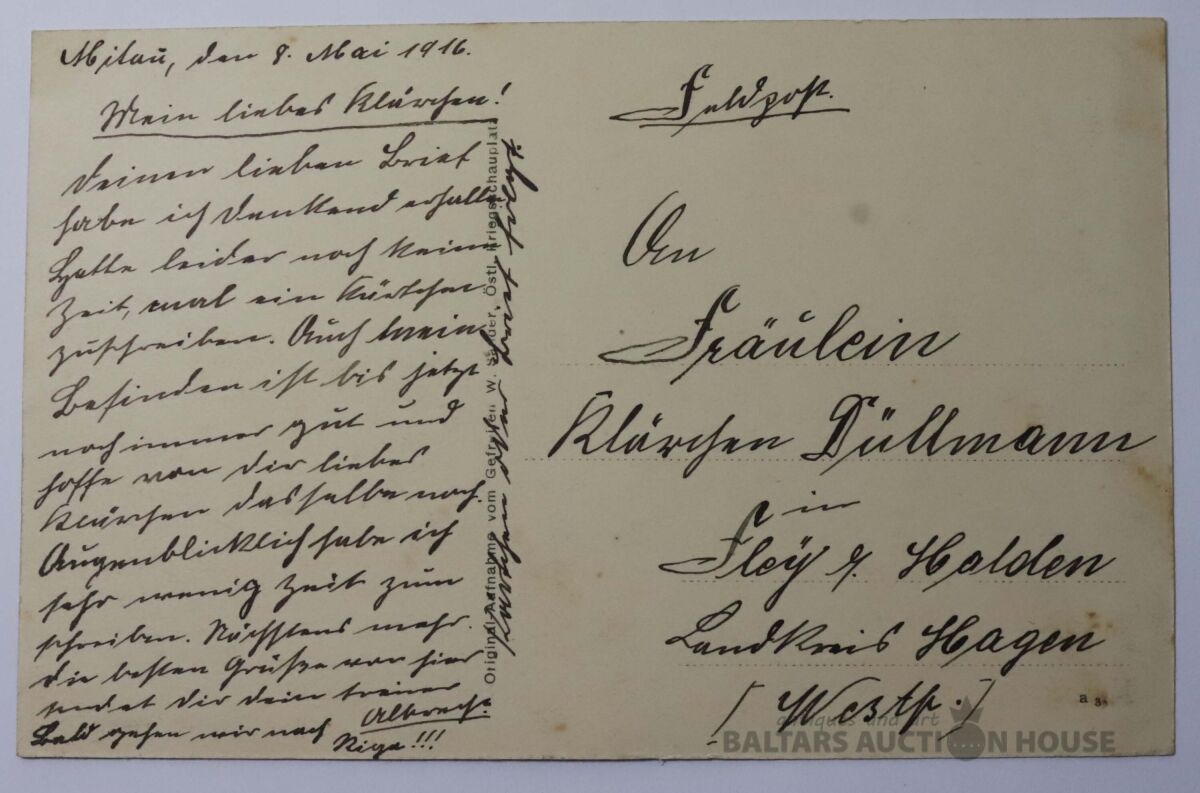 Mitau, den 8. Mai 1916.
Mein liebes Klärchen!
Deinen lieben Brief
habe ich dankend erhalten
Hatte leider noch keine
Zeit, mal ein Kärtchen
zuschreiben. Auch mein
Befinden ist bis jetzt
noch immer gut und
hoffe von dir liebes
Klärchen dasselbe noch.
Augenblicklich habe ich
sehr wenig Zeit zum
schreiben. Nächstens mehr.
Die besten Grüße von hier
sendet dir dein treuer
Albrecht.
Bald gehen wir nach
Riga!!!
Original-Aufnahme vom Gefreiten W. Sander, Östl. Kriegsschauplatz
Feldpost.
An
Fräulein
Klärchen Düllmann
in
Fley b. Halden
Landkreis Hagen
[Westf.]
a 3
antiques and art
BALTARS AUCTION HOUSE